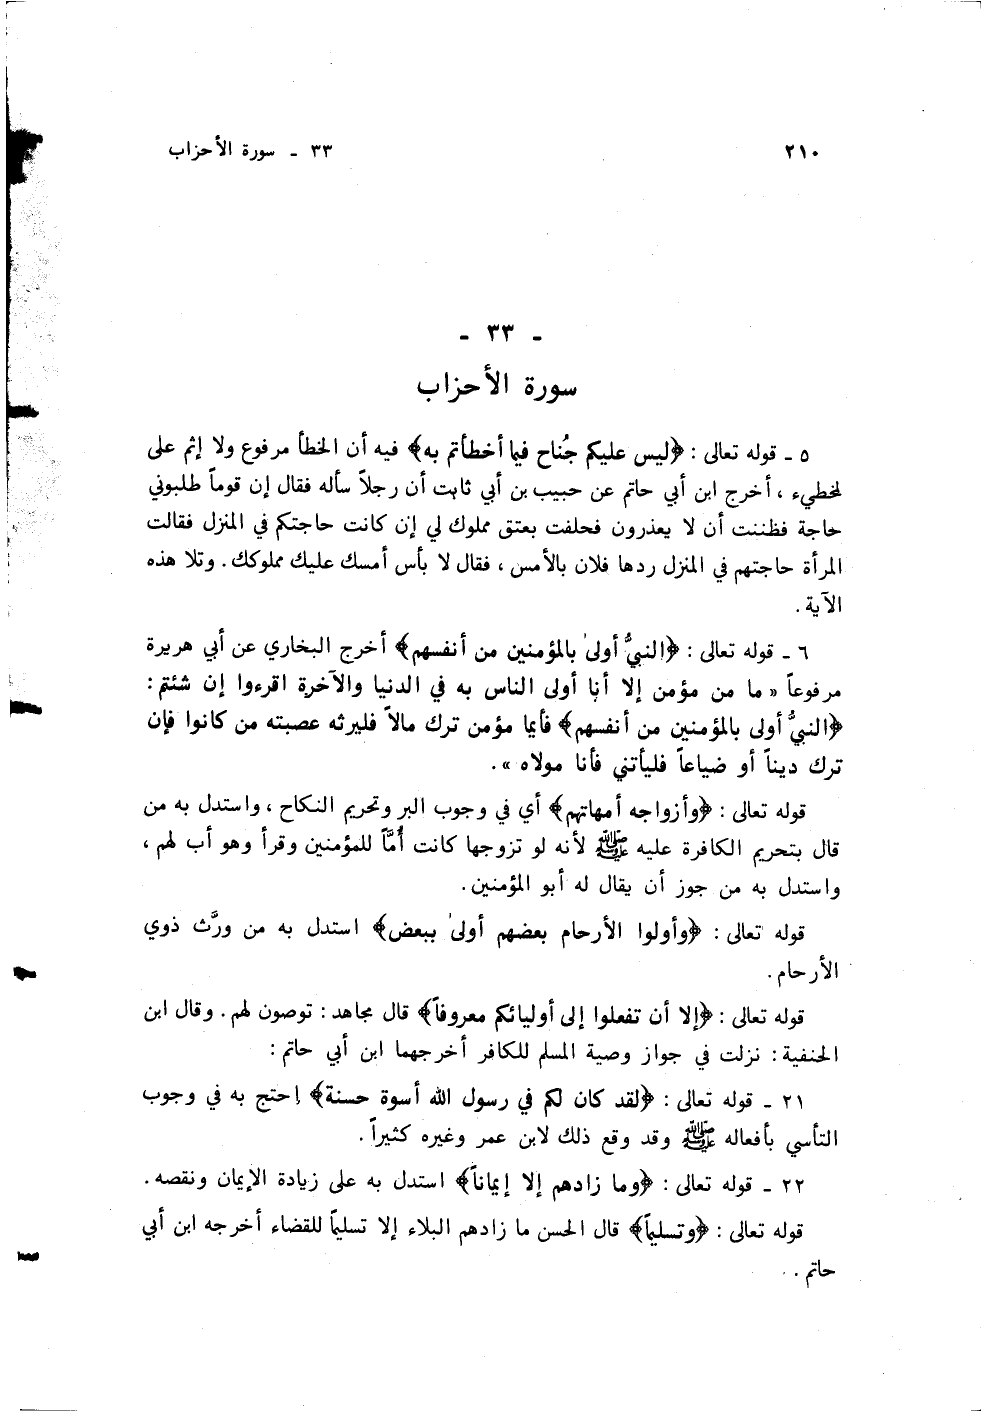 ٢١٠
٣٣ ـ سورة الأحزاب
ـ ٣٣ ـ
سورة الأحزاب
٥ ـ قوله تعالى : ﴿ليس عليكم جُناح فيما أخطأتم به﴾ فيه أن الخطأ مرفوع ولا إثم على
لمخطيء ، أخرج ابن أبي حاتم عن حبيب بن أبي ثابت أن رجلاً سأله فقال إن قوماً طلبوني
حاجة فظننت أن لا يعذرون فحلفت بعتق مملوك لي إن كانت حاجتكم في المنزل فقالت
المرأة حاجتهم في المنزل ردها فلان بالأمس ، فقال لا بأس أمسك عليك مملوكك . وتلا هذه
الآية .
٦ ـ قوله تعالى : ﴿النبيُّ أولىٰ بالمؤمنين من أنفسهم﴾ أخرج البخاري عن أبي هريرة
مرفوعاً « ما من مؤمن إلا أنا أولى الناس به في الدنيا والآخرة اقرءوا إن شئتم :
﴿النبيُّ أولى بالمؤمنين من أنفسهم﴾ فأيما مؤمن ترك مالاً فليرثه عصبته من كانوا فإن
ترك ديناً أو ضياعاً فليأتني فأنا مولاه » .
قوله تعالى : ﴿وأزواجه أمهاتهم﴾ أي في وجوب البر وتحريم النكاح ، واستدل به من
قال بتحريم الكافرة عليه ﷺ لأنه لو تزوجها كانت أُمَّاً للمؤمنين وقرأ وهو أب لهم ،
واستدل به من جوز أن يقال له أبو المؤمنين .
قوله تعالى : ﴿وأولوا الأرحام بعضهم أولىٰ ببعض﴾ استدل به من ورَّث ذوي
الأرحام .
قوله تعالى : ﴿إلا أن تفعلوا إلى أوليائكم معروفاً﴾ قال مجاهد : توصون لهم . وقال ابن
الحنفية : نزلت في جواز وصية المسلم للكافر أخرجهما ابن أبي حاتم :
٢١ ـ قوله تعالى : ﴿لقد كان لكم في رسول الله أسوة حسنة﴾ إحتج به في وجوب
التأسي بأفعاله ﷺ وقد وقع ذلك لابن عمر وغيره كثيراً .
٢٢ ـ قوله تعالى : ﴿وما زادهم إلا إيماناً﴾ استدل به على زيادة الإيمان ونقصه .
قوله تعالى : ﴿وتسليماً﴾ قال الحسن ما زادهم البلاء إلا تسليماً للقضاء أخرجه ابن أبي
حاتم .